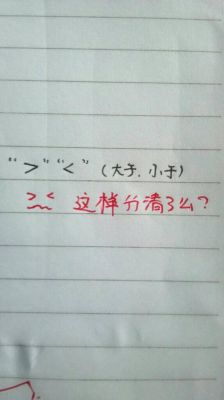 “＞”“＜”（大于、小于）
＞＜ 这样分清了么？